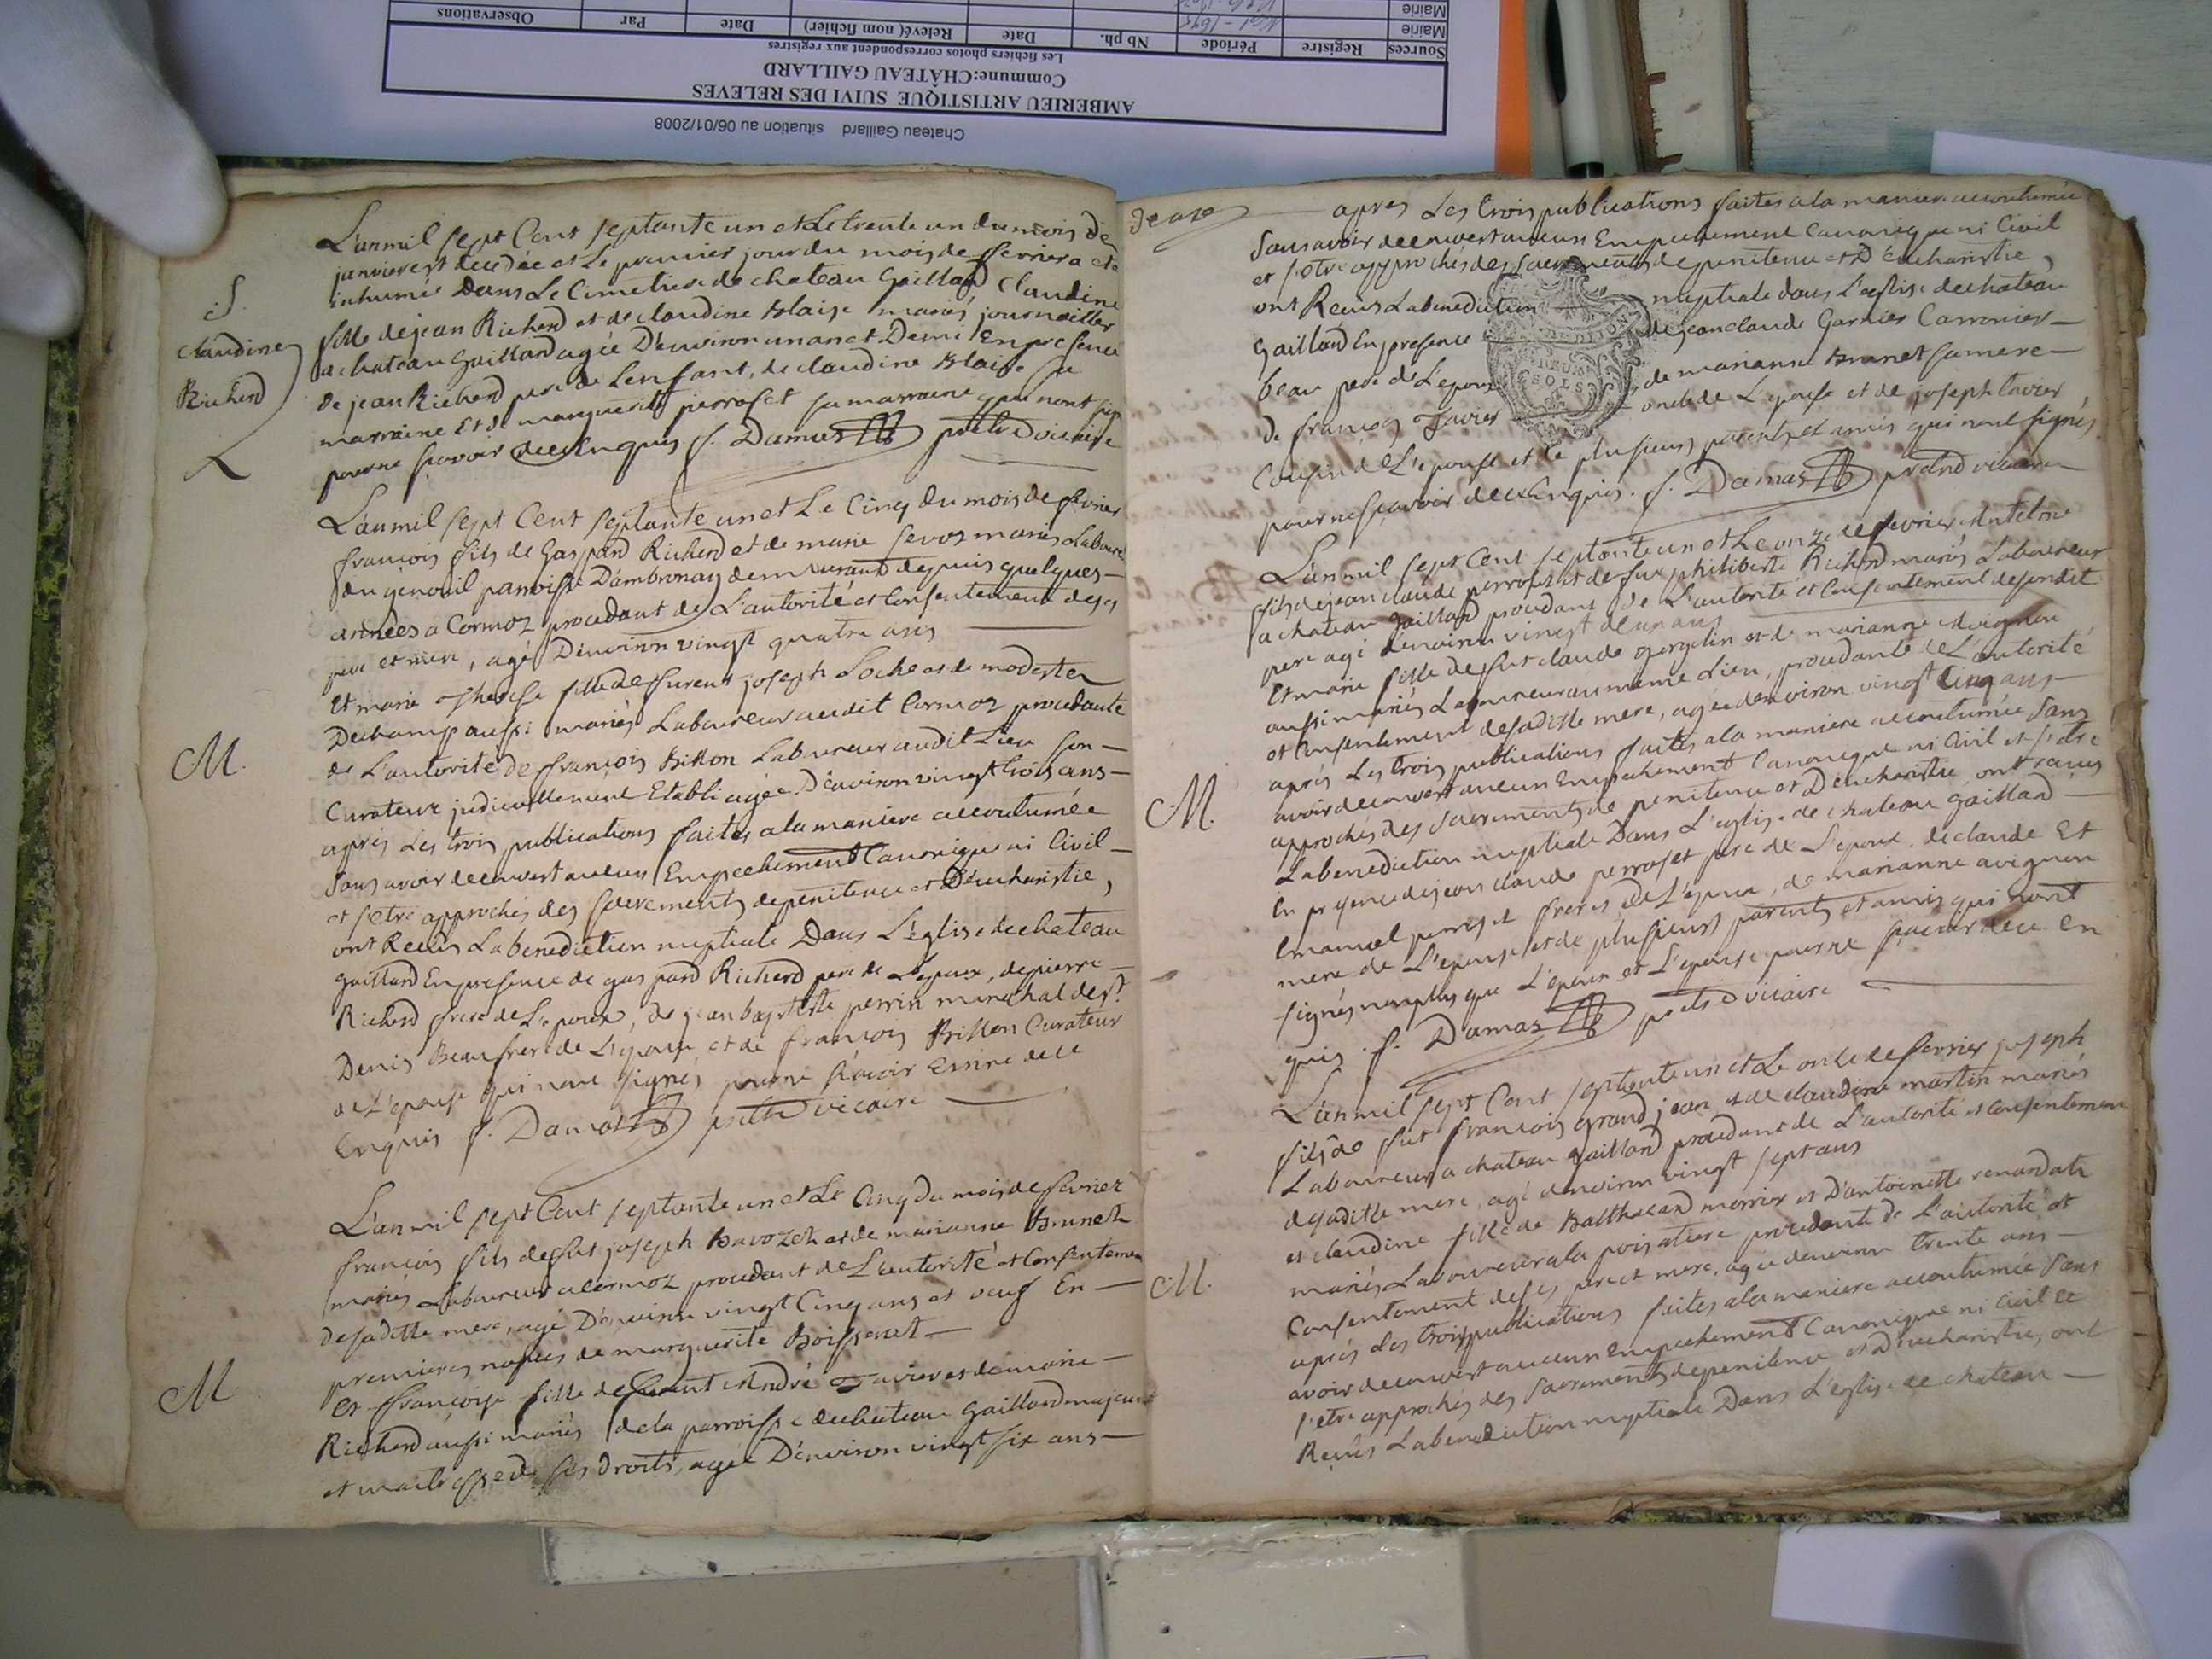 Chateau Gaillard situation au 06/01/2008
AMBERIEU ARTISTIQUE SUIVI DES RELEVES
Commune:CHÂTEAU GAILLARD
Les fichiers photos correspondent aux registres
Sources Registre Période Nb ph. Date Relevé( nom fichier) Date Par Observations
Mairie
Mairie
S.
Claudine
Richerd
L'an mil sept Cent septante un et Le trente un du mois De
janvier est decedée et Le premier jour du mois de fevrier a eté
inhumée Dans Le Cimetiere de chateau Gaillard Claudine
fille de jean Richerd et de claudine blaise mariés journallier
a chateau gaillard agée D'environ un an et Demi En presence
de jean Richerd pere de L'enfant, de claudine blaise sa
marraine Et de marguerite perroset sa marraine qui n'ont sig
pour ne sçavoir de ce Enquis f. Damas prêtre vicaire
L'an mil sept Cent septante un et Le Cinq du mois de fevrier
françois fils de Gaspard Richerd et de marie sevoz mariés Labour
du genouil parroisse D'ambronay demeurant depuis quelques
années a Cormoz procedant de L'autorité et Consentement de ses
pere et mere, agé D'environ vingt quatre ans
M.
Et marie therese fille de furent joseph Loche et de modeste
Dechamp aussi mariés Laboureur audit Cormoz procedante
de L'autorité de françois billon Laboureur audit Lieu son
Curateur judiciellement Etabli agée D'environ vingt trois ans
après Les trois publications faites a la maniere accoutumée
sans avoir decouvert aucun Empechement Canonique ni Civil
et s'etre approchés des sacrements de penitence et D'eucharistie,
ont Recus La benediction nuptiale Dans L'église de chateau
gaillard En presence de gaspard Richerd pere de L'epoux, de pierre
Richerd frere de L'epoux, de jean baptiste perrin marechal de st
Denis Beaufrere de L'epouse et de françois Billon Curateur
de L'epouse qui n'ont signés pour ne sçavoir Ecrire de ce
Enquis f. Damas prêtre vicaire
L'an mil sept Cent septante un et Le Cinq du mois de fevrier
françois fils de fut joseph bavozet et de marianne brunet
mariés Laboureur a Cormoz procedant de L'autorité et Consentemen
de sa ditte mere, agé D'environ vingt Cinq ans et veuf En
premieres nopces de marguerite Boissonet
M
Et françoise fille de furent André Tavier et de marie
Richerd aussi mariés de la parroisse de chateau gaillard majeure
et maitresse de ses droits, agée D'environ vingt six ans
apres Les trois publications faites a la maniere accoutumée
sans avoir decouvert aucun Empechement Canonique ni Civil
et s'etre approchés des sacrements de penitence et D'eucharistie,
ont Recus La benediction nuptiale dans L'eglise de chateau
Gaillard En presence de jean claude Garnier
beau pere de L'epoux, de marianne brunet sa mere
de françois Tavier oncle de L'epouse et de joseph tavier
Cousin de L'epouse et de plusieurs parents et amis qui n'ont signés
pour ne sçavoir de ce Enquis. f. Damas prêtre vicaire
L'an mil sept Cent septante un et Le onze de fevrier Antelme
fils de jean claude perroset et de fut philiberte Richerd mariés Laboureur
a chateau gaillard procedant de L'autorité et Consentement de sondit
pere agé d'environ vingt deux ans
Et marie fille de fut claude et de marianne avignon
aussi mariés Laboureur au meme Lieu, procedante de L'autorité
et Consentement de sa ditte mere, agée d'environ vingt Cinq ans
M.
après Les trois publications faites a la maniere accoutumée sans
avoir decouvert aucun Empechement Canonique ni Civil et s'etre
approchés des sacrements de penitence et D'eucharistie ont recus
La benediction nuptiale Dans L'eglise de chateau gaillard
En presence de jean claude perroset pere de L'epoux de claude Et
Emanuel perroset freres de L'epoux, de marianne avignon
mere de L'epouse et de plusieurs parents et amis qui n'ont
signés non plus que L'epoux et L'epouse pour ne sçavoir de ce en
quis. f. Damas prêtre vicaire
L'an mil sept Cent septante un et Le onze de fevrier joseph
fils de fut françois grand jean et de claudine martin mariés
Laboureur a chateau gaillard procedant de L'autorité et Consentement
de sa ditte mere, agé d'environ vingt sept ans
et claudine fille de Balthazard et D'antoinette
M.
mariés Laboureur a la poisatiere procedante de L'autorité et
Consentement de ses pere et mere, agée d'environ trente ans
après Les trois publications faites a la maniere accoutumée sans
avoir decouvert aucun empechement Canonique ni Civil et
s'etre approchés des sacrements de penitence et D'eucharistie, ont
Reçus La benediction nuptiale Dans L'eglise de chateau